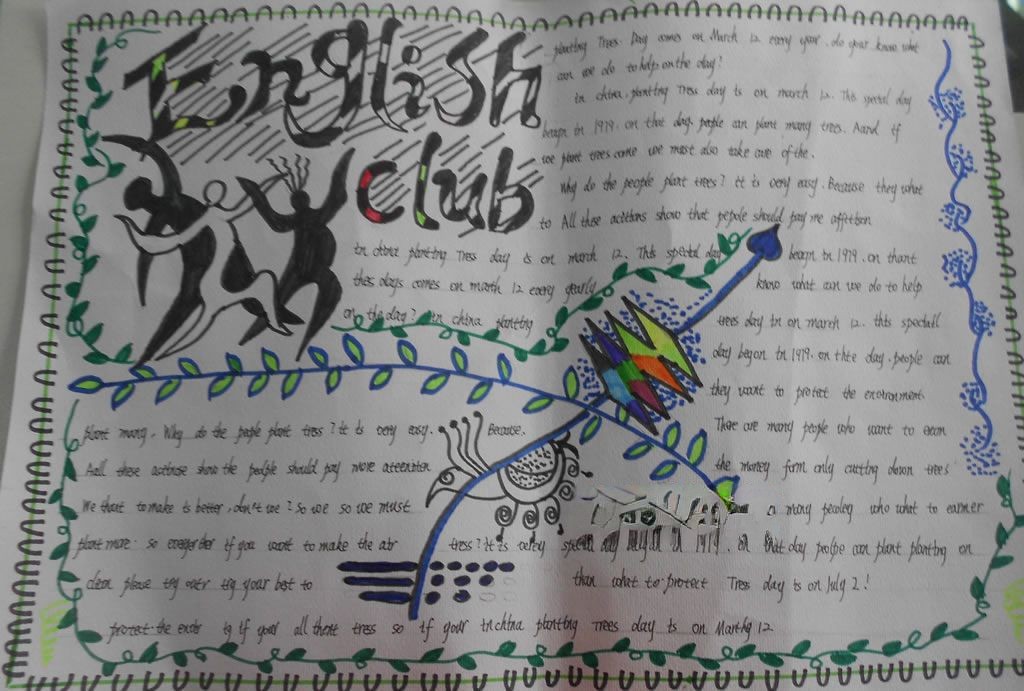 English
club
planting Trees. Day comes on March 12 every year. do year know what
can we do to help on the day?
in china. planting Tress day is on march 12. This special day
began in 1979. on that day. people can plant many trees. Aand if
we plant trees come we must also take care of the.
Why do the people plant trees? It is very easy. Because they what
to All these acitions show that pepole should pay me affition
in china planting Tress day is on march 12. This special day began in 1979. on thant
thes days comes on marth 12 every yearly know what can we do to help
on the day? in china planting trees day in on march 12. this speciall
day began in 1979. on thte day. people can
they want to protect the environment.
plant many. Why do the people plant tress? it is very easy. Because. There are many people who want to
Aall these show the people should pay more the money form only cutting down trees
We thant to make is better. don't we? So we so we must a many who what to earner
plant more. so if you want to make the air tress? it is verey special day in 1979. on that day peolpe can plant planting on
clean please try your best to than what to protect Tress day is on July 2!
protect the if your all thent tress so if your inchina planting Trees day is on Marthy 12